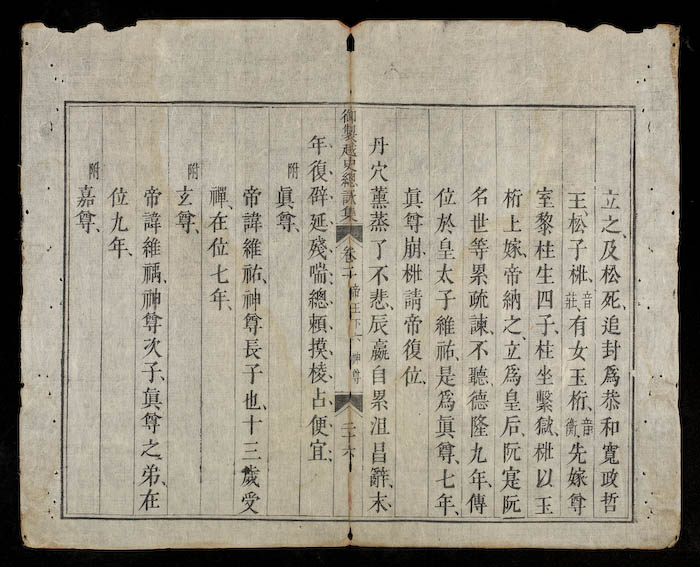 立之、及松死、追封爲恭和寬政哲
王、松子梉、音莊有女玉桁、音衡先嫁尊
室黎柱生四子、柱坐繫獄、梉以玉
桁上嫁、帝納之、立爲皇后、阮寔阮
名世等累疏諫、不聽、德隆九年、傳
位於皇太子維祐、是爲眞尊、七年、
眞尊崩、梉請帝復位、
丹穴薰蒸了不悲、辰嬴自累沮昌辭、末
年復辟延殘喘、總賴摸棱占便宜、
御製越史總詠集
卷二 帝王下六 神尊
二十六
附
眞尊、
帝諱維祐、神尊長子也、十三歲受
禪、在位七年、
附
玄尊、
帝諱維禑、神尊次子、眞尊之弟、在
位九年、
附
嘉尊、